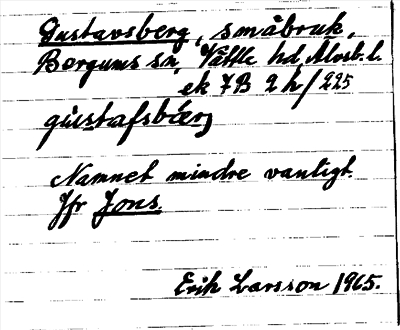 Gustavsberg, småbruk,
Bergums sn, Vättle hd, Älvsb. l.
ek 7B 2h/225
gùstafsbær̨j
Namnet mindre vanligt.
Jfr Jons.
Erik Larsson 1965.